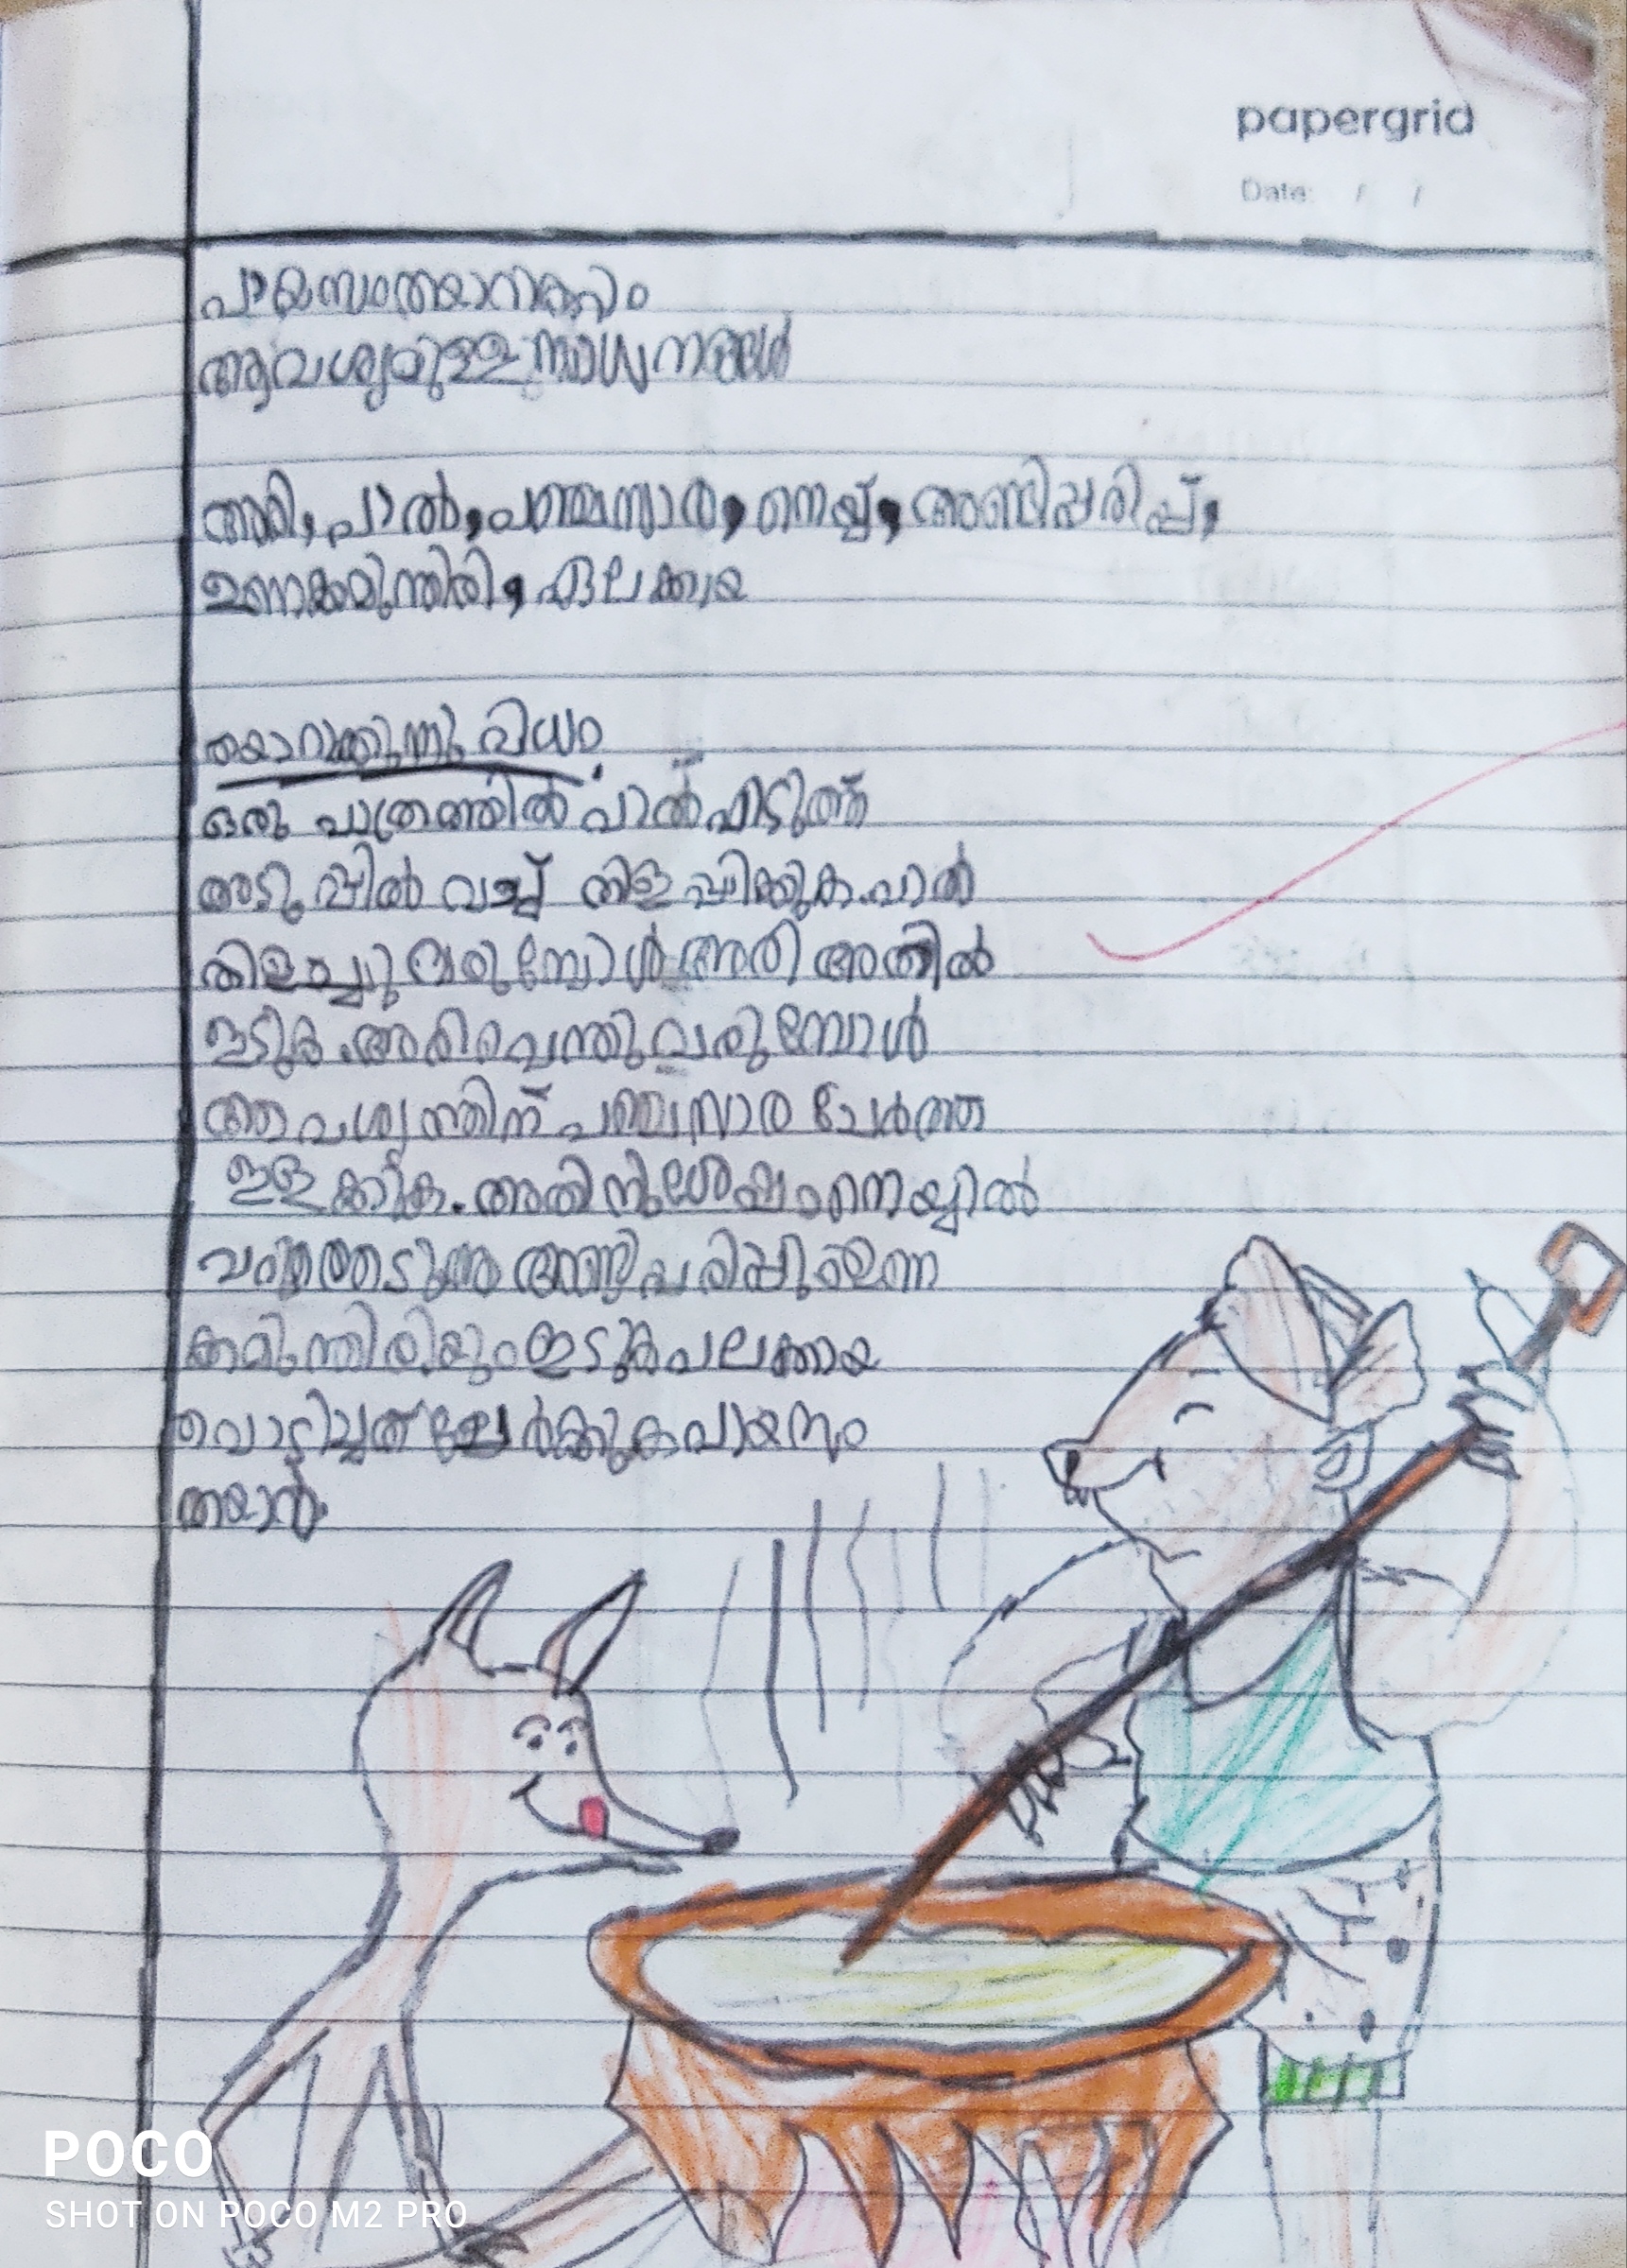 papergrid
Date: / /
പായസംതയാറാക്കാം
ആവശ്യമുള്ള സാധനങ്ങൾ
അരി, പാൽ, പഞ്ചസാര, നെയ്യ്, അണ്ടിപ്പരിപ്പ്,
ഉണക്കമുന്തിരി, ഏലക്കായ
തയാറാക്കുന്ന വിധം
ഒരു പാത്രത്തിൽ പാൽ എടുത്ത്
അടുപ്പിൽ വച്ച് തിളപ്പിക്കുക.പാൽ
തിളച്ചു വരുമ്പോൾ അരി അതിൽ
ഇടുക.അരി വെന്തു വരുമ്പോൾ
ആവശ്യത്തിന് പഞ്ചസാര ചേർത്ത
ഇളക്കുക. അതിനുശേഷം നെയ്യിൽ
വറുത്തെടുത്ത അണ്ടിപ്പരിപ്പും ഉണ
ക്കമുന്തിരിയും ഇടുക ഏലക്കായ
പൊട്ടിച്ചത് ചേർക്കുക പായസം
തയാർ
POCO
SHOT ON POCO M2 PRO